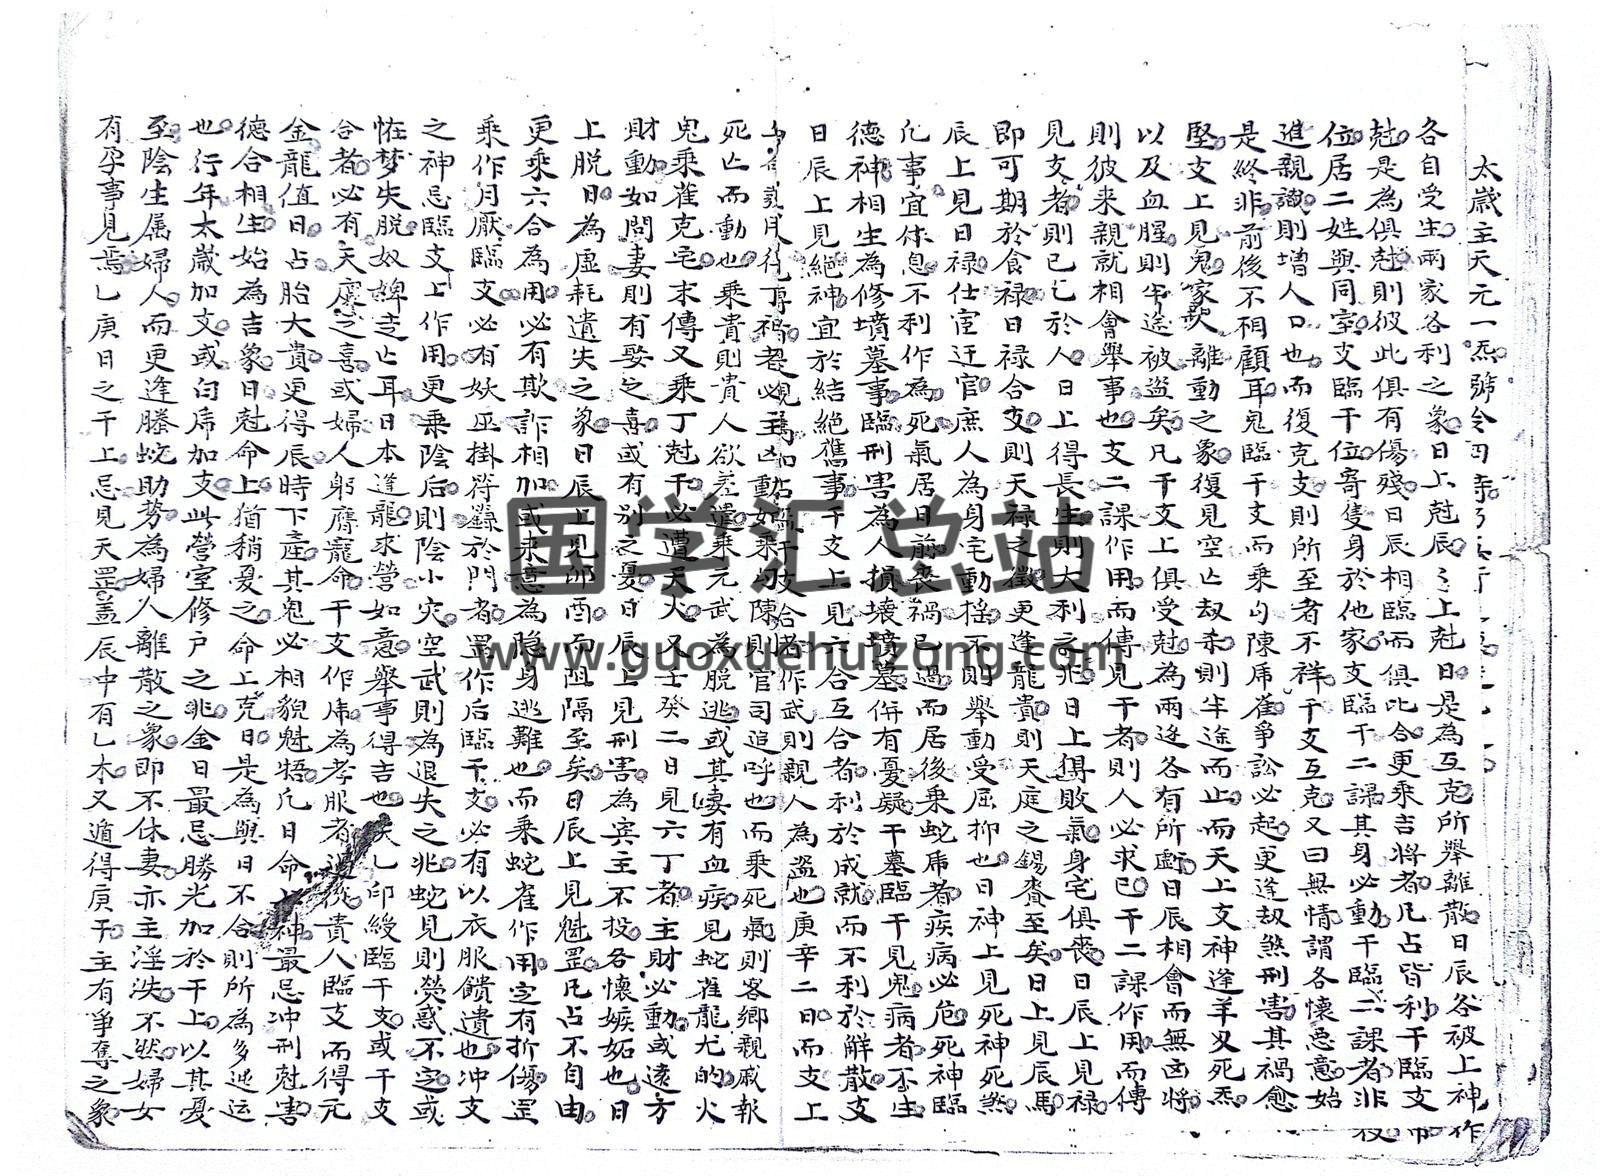 太歲主天元一炁號令四
各自受生兩家各利之象日上尅辰辰上尅日是為互克所舉離散日辰各被上神作
尅是為俱尅則彼此俱有傷殘日辰相臨而俱比合更乘吉將者凡占皆利干臨支
位居二姓與同室支臨干位寄隻身於他家支臨干二課其身必動干臨二課者非
進親識則增人口也而復克支則所至者不祥干支互克又曰無情謂各懷惡意始
是終非前後不相顧耳鬼臨干支而乘勾陳虎雀爭訟必起更逢刼煞刑害其禍愈
堅支上見鬼家欵離動之象復見空亡刼杀則半途而止而天上支神逢羊刃死炁
以及血腥則半途被盜矣凡干支上俱受尅為兩迯各有所虧日辰相會而無凶將
則彼来親就相會舉事也支二課作用而傳見干者則人必求己干二課作用而傳
見支者則己亡於人日上得長生則大利之兆日上得敗氣身宅俱喪日辰上見祿
即可期於食祿日祿合支則天祿之徵更逢龍貴則天庭之錫賚至矣日上見辰馬
辰上見日祿仕宦迁官庶人為身宅動摇不則舉動受屈抑也日神上見死神死煞
凢事宜休息不利作為死氣居日前喪禍已過而居後乘蛇虎者疾病必危死神臨
德神相生為修墳墓事臨刑害為人損壞墳墓併有憂疑干墓臨干見鬼病者不生
日辰上見絕神宜於結絕舊事干支上見六合互合者利於成就而不利於解散支
作武則親人為盜也庚辛二日而支上
死亡而動也乘貴則貴人欲差遣乘元武為脱逃或其妻有血疾見蛇雀龍尤的火
鬼乘雀克宅末傳又乘丁尅干必遭天火又壬癸二日見六丁者主財必動或遠方
財動如問妻則有娶之喜或有別之憂日辰上見刑害為賓主不投各懷嫉妬也日
上脱日為虛耗遺失之象日辰上見卯酉而阻隔至矣日辰上見魁罡凡占不自由
更乘六合為用必有欺詐相加或来意為隐身逃難也而乘蛇雀作用定有折傷罡
乘作月厭臨支必有妖巫掛符籙於門者罡作后臨干支必有以衣服饋遺也冲支
之神忌臨支上作用更乘陰后則陰小灾空武則為退失之兆蛇見則熒惑不定或
怪梦失脱奴婢走亡耳日本逢龍求營如意舉事得吉也
合者必有天慶之喜或婦人躬膺寵命干支作虎為孝服者
金龍值日占胎大貴更得辰時下產其鬼必相貌魁梧凢日命
德合相生始為吉象日尅命上猶稍憂之命上克日是為與日不合則所為多迍运
也行年太歲加支或白虎加支此營室修户之兆金日最忌勝光加於干上以其憂
至陰生属婦人而更逢螣蛇助势為婦人離散之象即不休妻亦主淫泆不然婦女
有孕事見焉乚庚日之干上忌見天罡盖辰中有乚木又遁得庚干主有爭奪之象
国学汇总站
www.guoxuehuizong.com